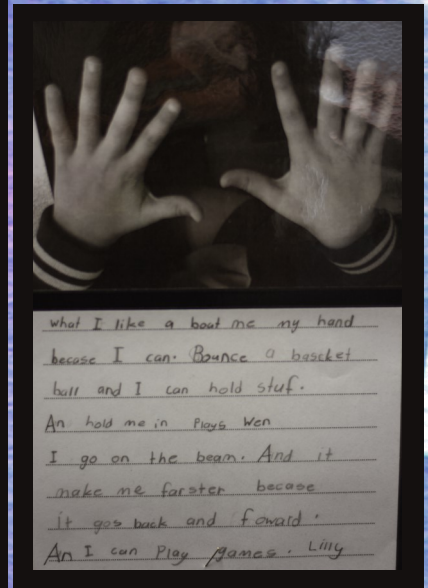 what I like a bout me my hand
becase I can. Bounce a bascket
ball and I can hold stuf.
An hold me in Plays Wen
I go on the beam. And it
make me farster becase
it gos back and foward.
An I can Play games. Lilly